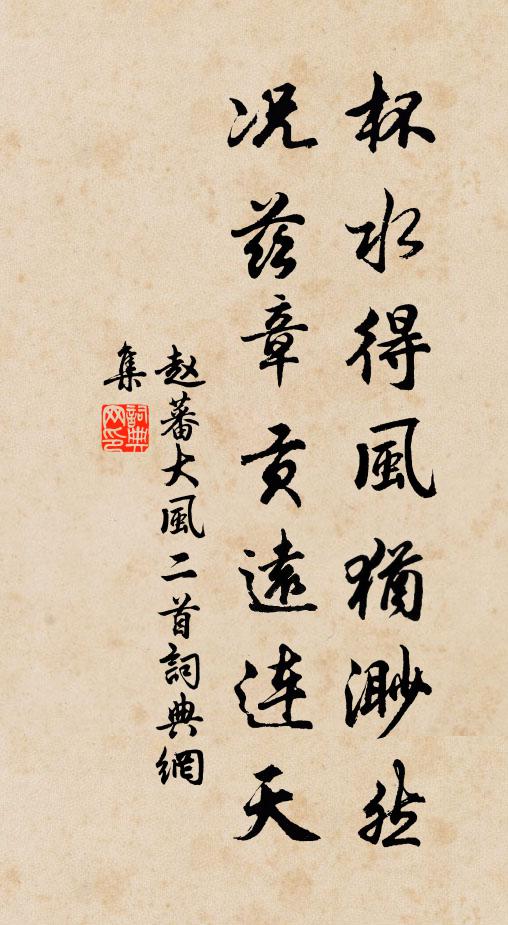 杯水得風猶渺然
况兹章贡遠连天
赵蕃大風二首詞典網
集
詞典网印